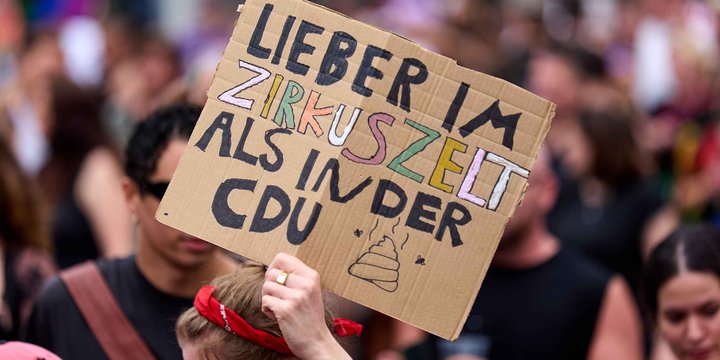 LIEBER IM
ZIRKUSZELT
ALS IN DER
CDU